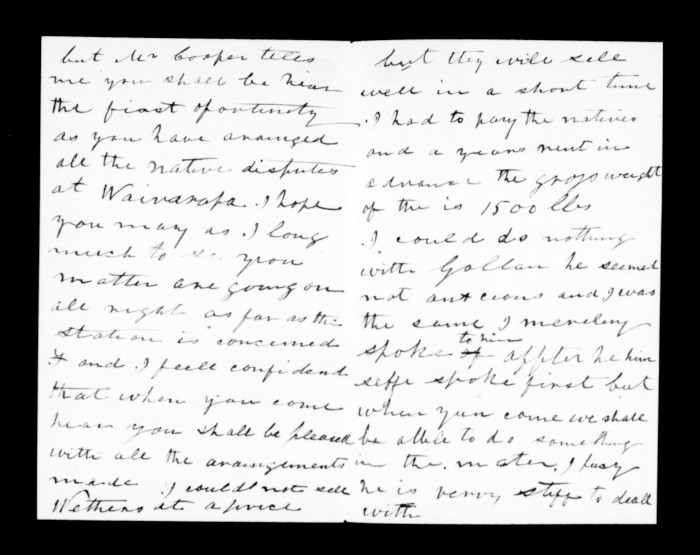 but Mr Cooper tells
me you shall be hear
the first oportunity
as you have arainged
all the native disputes
at Wairarapa. I hope
you may as I long
much to se you
matter are going on
all right as far as the
station is concerned
and I feele confident
that when you come
hear you shall be pleased
with all the arainsgements
made. I could not sell
Wethers at a price
but they will sell
well in a short time
. I had to pay the natives
and a years rent in
advance the gross weight
of the is 1500 lbs
. I could do nothing
with Gollan he seemed
not anxcious and I was
the same I mereley
spoke to him affter he him
selfe spoke first but
when you come we shall
be able to do something
in the mater, I fusy
he is verry stiff to deall
with